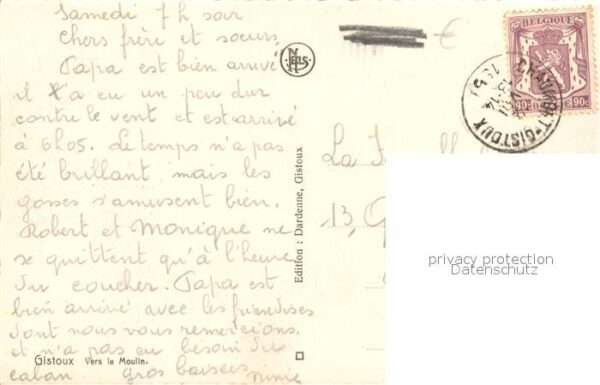 Samedi 7h soir
Chers frère et soeurs,
Papa est bien arrivé
il a eu un peu dur
contre le vent et est arrivé
à 6h05. Le temps n'a pas
été brillant, mais les
gosses s'amusent bien.
Robert et Monique ne
se quittent qu'à l'heure
du coucher. Papa est
bien arrivé avec les friandises
dont nous vous remercions.
et n'a pas eu besoin du
caban. gros baisers
Gistoux Vers le Moulin.
NELS
Edition : Dardenne, Gistoux
€
BELGIQUE
90c 90c
CHAUMONT-GISTOUX
La
13,
privacy protection
Datenschutz